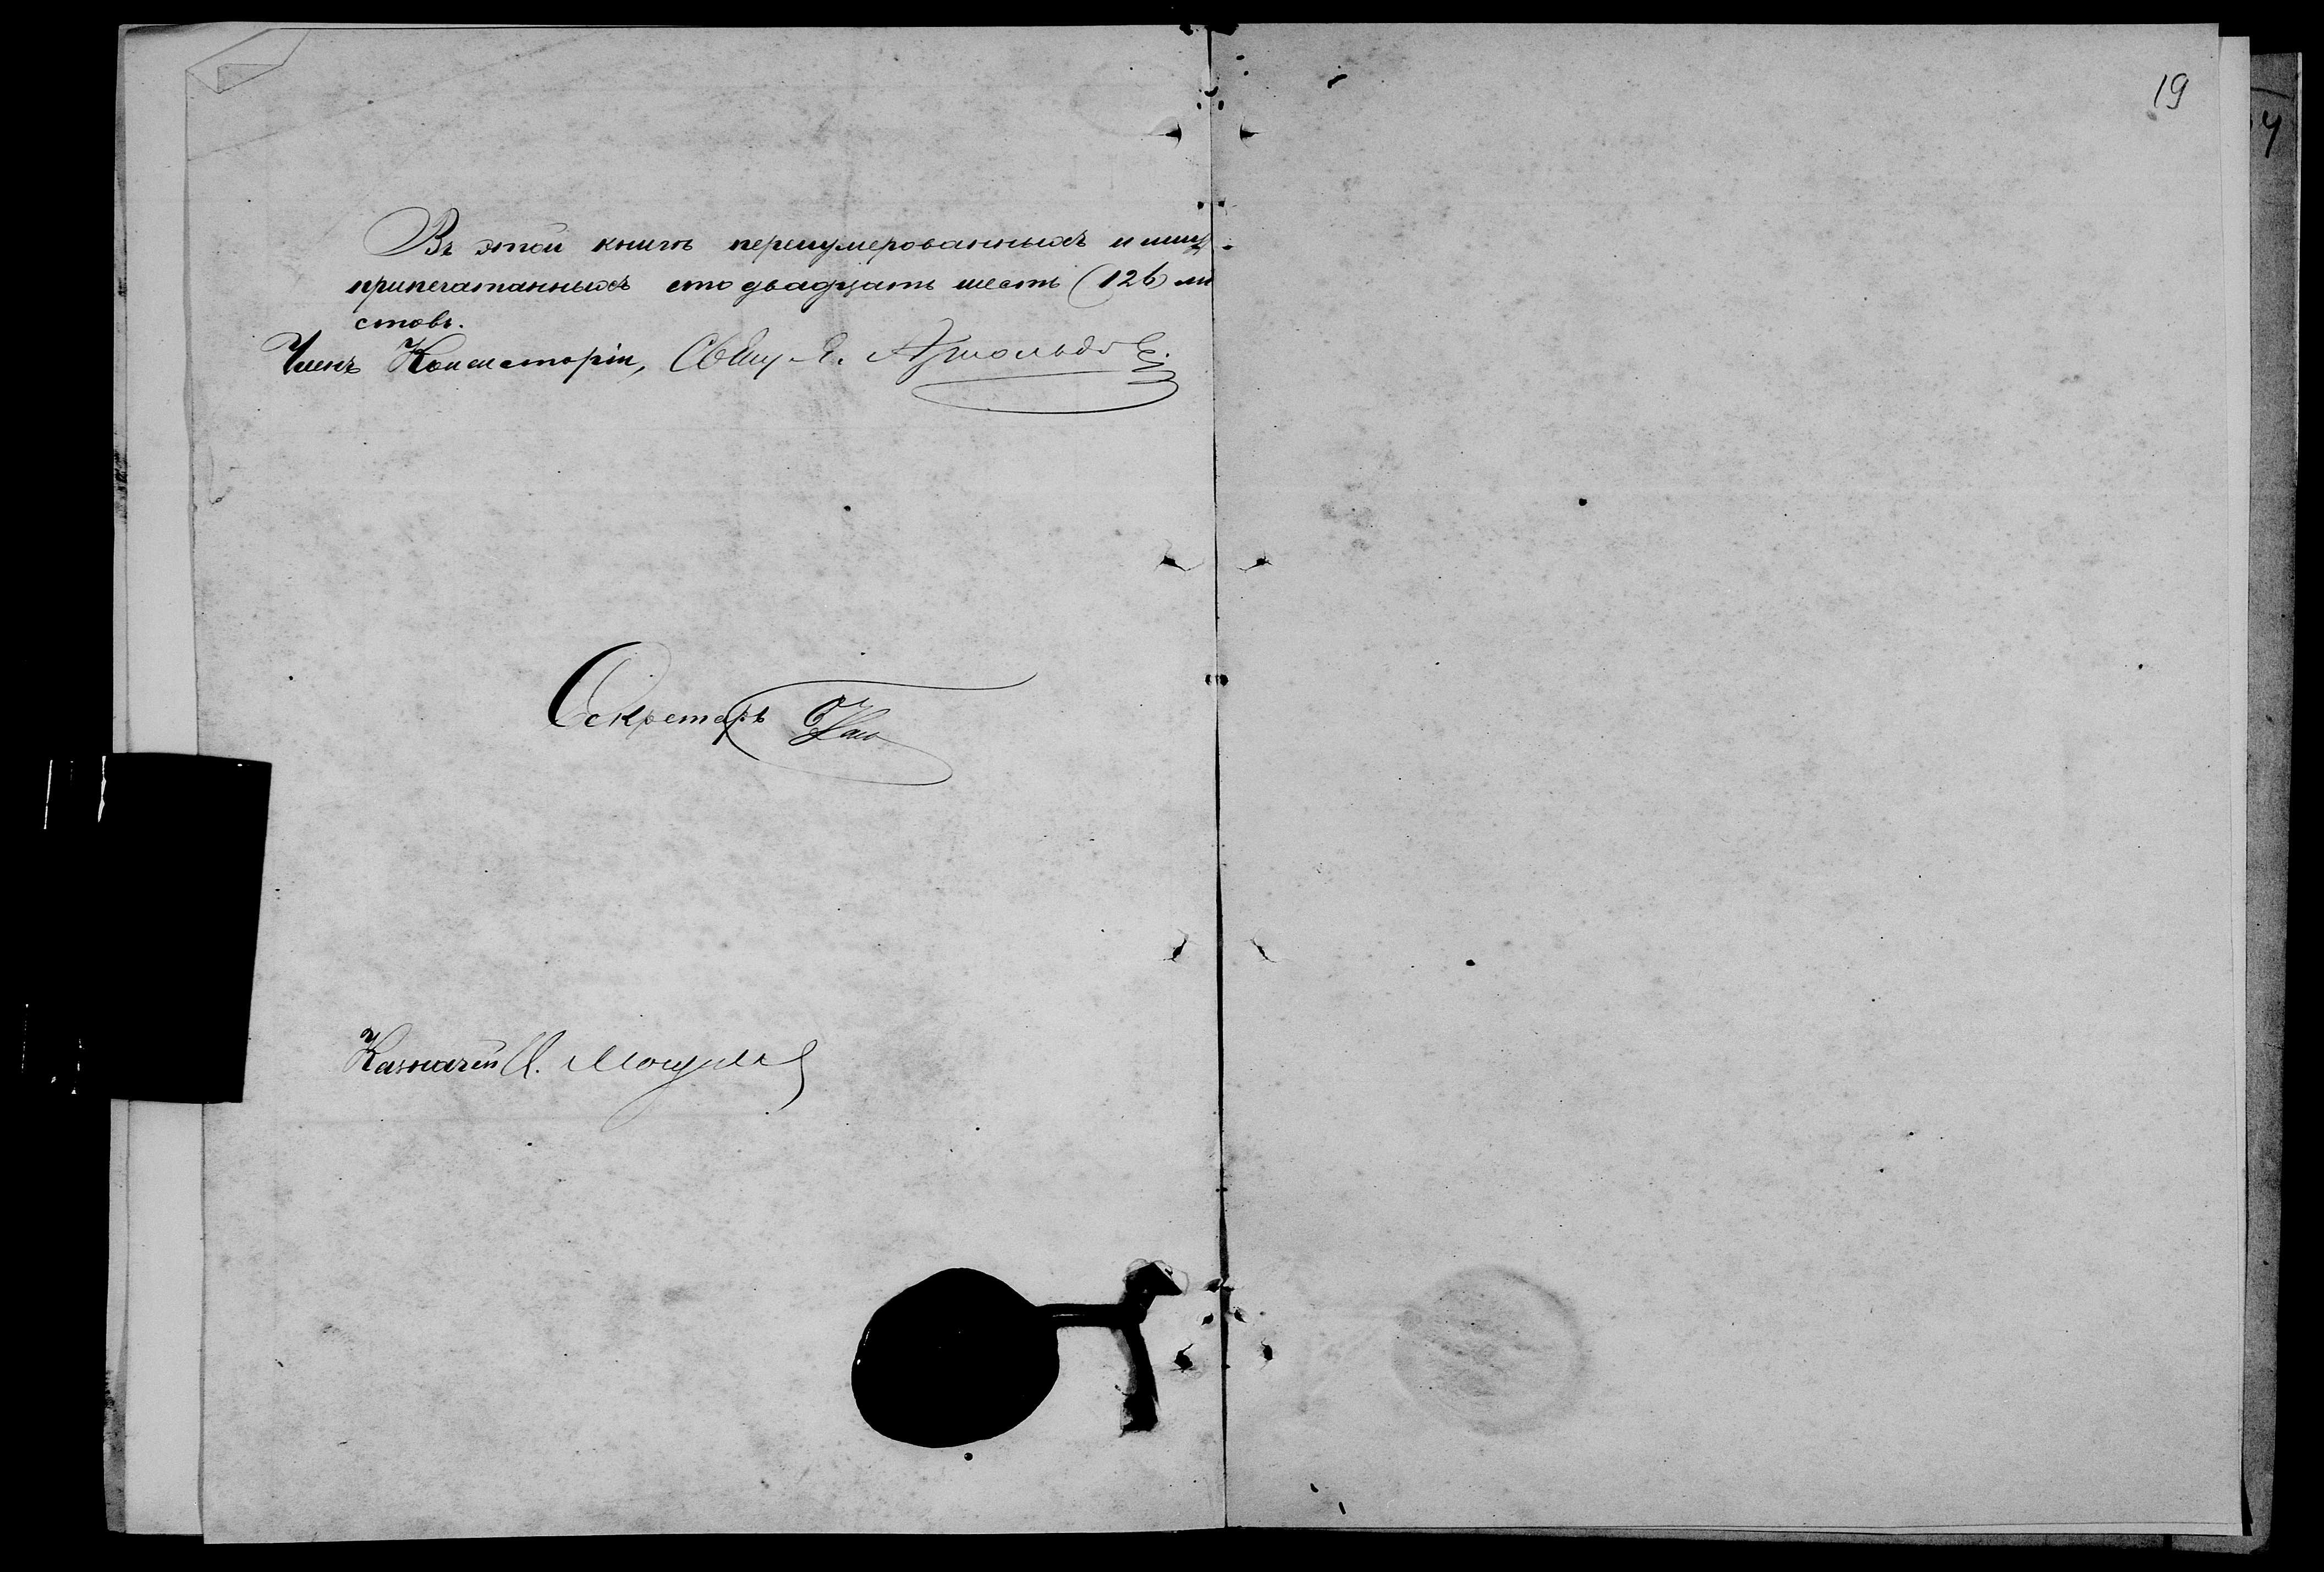 19
Въ этой книгѣ перенумерованныхъ и шнур
припечатанныхъ сто двадцать шесть (126) ли
стовъ.
Членъ Консисторіи, Свящ.
Секретарь
Казначей